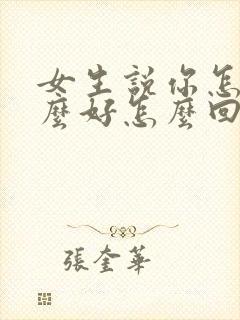 女生說你怎
麼好怎麼回
張奎華